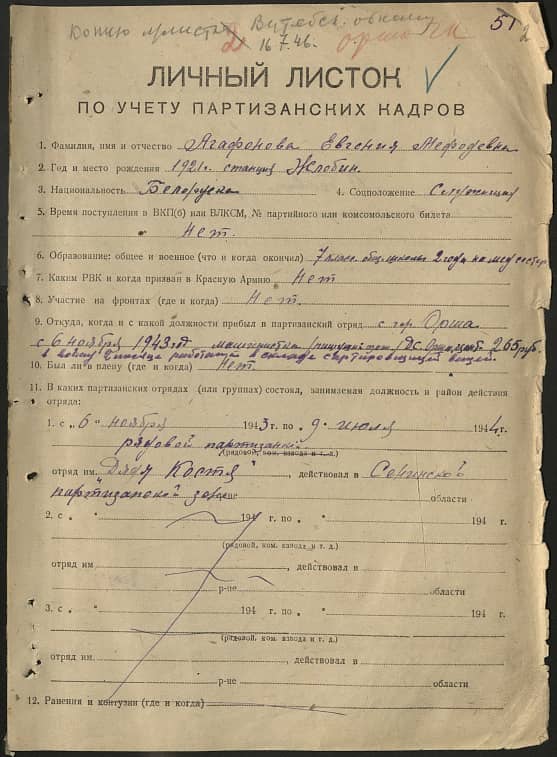 Копию Витебск. обкому
51
2
16.7.46.
Орша ГК
ЛИЧНЫЙ ЛИСТОК
ПО УЧЕТУ ПАРТИЗАНСКИХ КАДРОВ
1. Фамилия, имя и отчество Агафонова Евгения Мефодевна
2. Год и место рождения 1921г. станция Жлобин.
3. Национальность Белоруска 4. Соцположение Служащая
5. Время поступления в ВКП(б) или ВЛКСМ, № партийного или комсомольского билета
Нет.
6. Образование: общее и военное (что и когда окончил) 7 класс. общ. школы 2 года на мед сестер
7. Каким РВК и когда призван в Красную Армию Нет
8. Участие на фронтах (где и когда) Нет.
9. Откуда, когда и с какой должности прибыл в партизанский отряд с гор Орша
с 6 ноября 1943 г. 265 руб.
в войну 2 месяца в складе сортировщицей вещей.
10. Был ли в плену (где и когда) Нет.
11. В каких партизанских отрядах (или группах) состоял, занимаемая должность и район действия
отряда:
1. с „6“ ноября 1943 г. по „9“ июля 1944 г.
рядовой партизанкой
(рядовой, ком. взвода и т. д.)
отряд им. "Дяди Костя", действовал в Сенинской
партизанской зоне области
2. с „ “ 194 г. по „ “ 194 г.
(рядовой, ком. взвода и т. д.)
отряд им. , действовал в
р-не области
3. с „ “ 194 г. по „ “ 194 г.
(рядовой, ком. взвода и т. д.)
отряд им. , действовал в
р-не области
12. Ранения и контузии (где и когда)